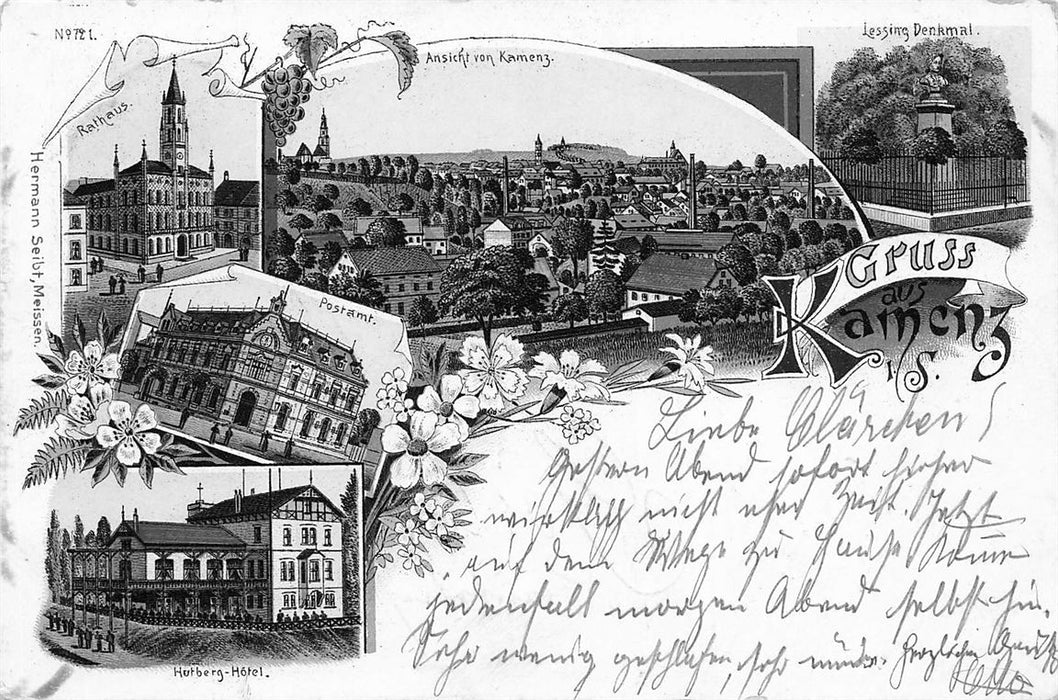 No 721.
Rathaus.
Ansicht von Kamenz.
Lessing Denkmal.
Hermann Seibt, Meissen.
Postamt.
Gruss
aus
Kamenz
i/S.
Hutberg-Hôtel.
Liebe Clärchen!
Gestern Abend sofort hierher
wirklich nicht eher Zeit. Jetzt
auf dem Wege zu Hause. Komme
jedenfalls morgen Abend selbst hin.
Sehr wenig geschlafen, sehr müde. Herzlichen